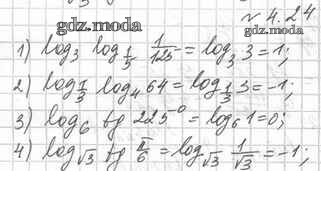 № 4.24
gdz.moda gdz.moda
1) log₃ log_{1/5} 1/125 = log₃ 3 = 1;
2) log_{1/3} log₄ 64 = log_{1/3} 3 = -1;
3) log₆ tg 225° = log₆ 1 = 0;
4) log_{√3} tg π/6 = log_{√3} 1/√3 = -1;